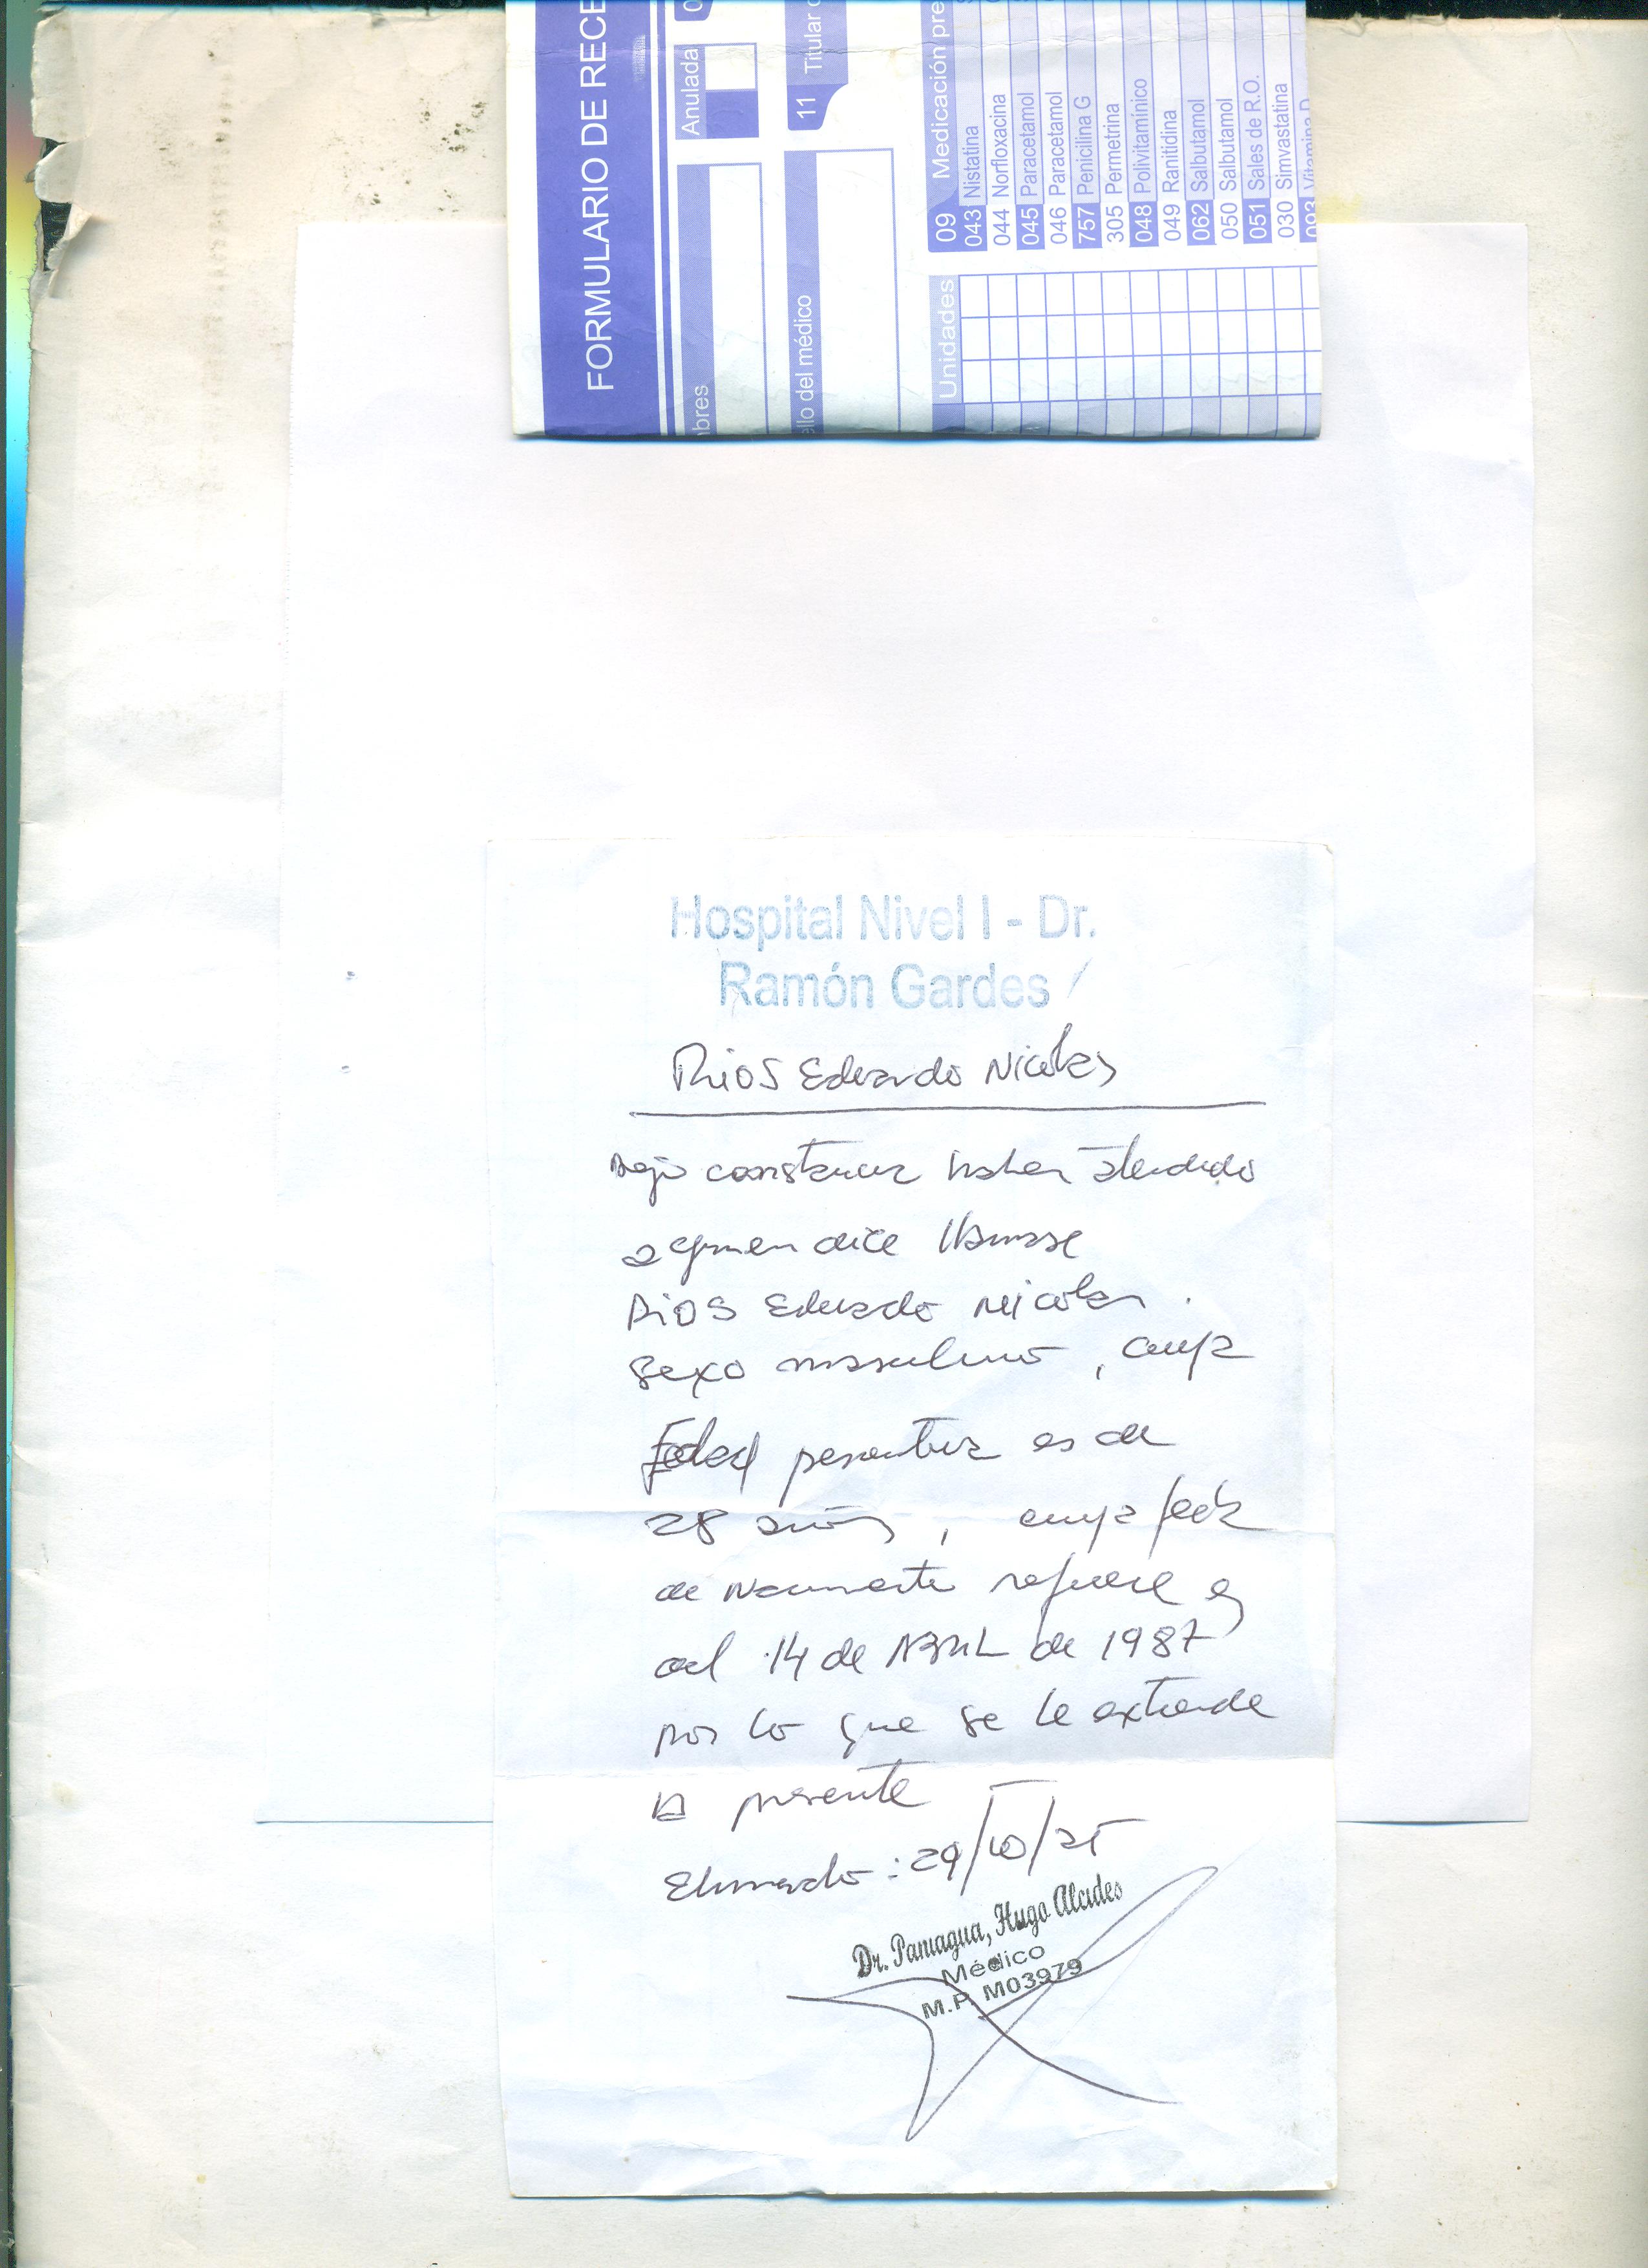 FORMULARIO DE RECE
Anulada
0
11 Titular
mbres
llo del médico
09 Medicación pre
Unidades
043 Nistatina
044 Norfloxacina
045 Paracetamol
046 Paracetamol
757 Penicilina G
305 Permetrina
048 Polivitamínico
049 Ranitidina
062 Salbutamol
050 Salbutamol
051 Sales de R.O.
030 Simvastatina
093 Vitamina D
Hospital Nivel I - Dr.
Ramón Gardes
Rios Eduardo Nicolas
Dejo constancia haber atendido
a quien dice llamarse
Rios Eduardo Nicolas.
Sexo masculino, cuya
Edad es de
28 años, cuya fecha
de Nacimiento refiere es
del 14 de ABRIL de 1987
por lo que se le extiende
la presente
: 29/10/25
Dr. Paniagua, Hugo Alcides
Médico
M.P. M03979